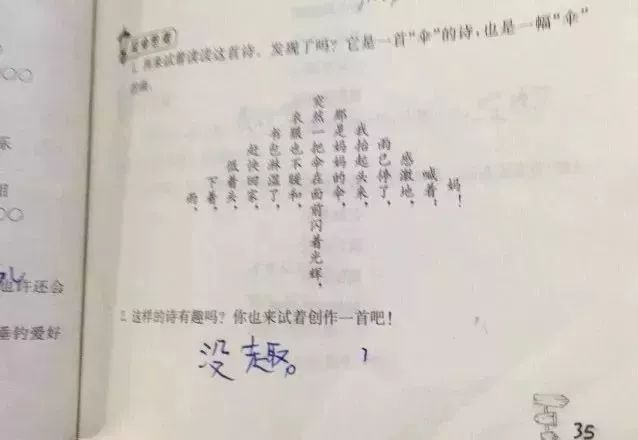 1. 再来试着读读这首诗，发现了吗？它是一首“伞”的诗，也是一幅“伞”
的画。
雨，
下着，
低着头，
赶快回家，
书包淋湿了，
衣服也不暖和，
突然一把伞在面前闪着光辉，
那是妈妈的伞，
我抬起头来，
雨已停了，
感激地，
喊着：
妈！
2. 这样的诗有趣吗？你也来试着创作一首吧！
没趣。
35
也许还会
垂钓爱好